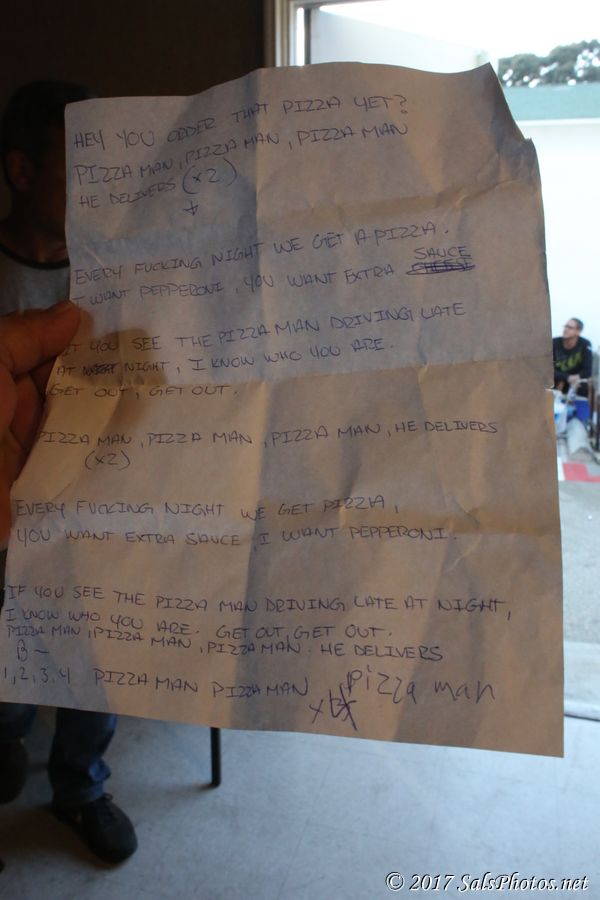 HEY YOU ODDER THAT PIZZA YET?
PIZZA MAN, PIZZA MAN, PIZZA MAN
HE DELIVERS (x2)
EVERY FUCKING NIGHT WE GET A PIZZA.
I WANT PEPPERONI, YOU WANT EXTRA SAUCE
IF YOU SEE THE PIZZA MAN DRIVING LATE
AT NIGHT, I KNOW WHO YOU ARE.
GET OUT, GET OUT.
PIZZA MAN, PIZZA MAN, PIZZA MAN, HE DELIVERS
(x2)
EVERY FUCKING NIGHT WE GET PIZZA,
YOU WANT EXTRA SAUCE, I WANT PEPPERONI.
IF YOU SEE THE PIZZA MAN DRIVING LATE AT NIGHT,
I KNOW WHO YOU ARE. GET OUT, GET OUT.
PIZZA MAN, PIZZA MAN, PIZZA MAN. HE DELIVERS
B-
1,2,3,4 PIZZA MAN PIZZA MAN pizza man
© 2017 SalsPhotos.net